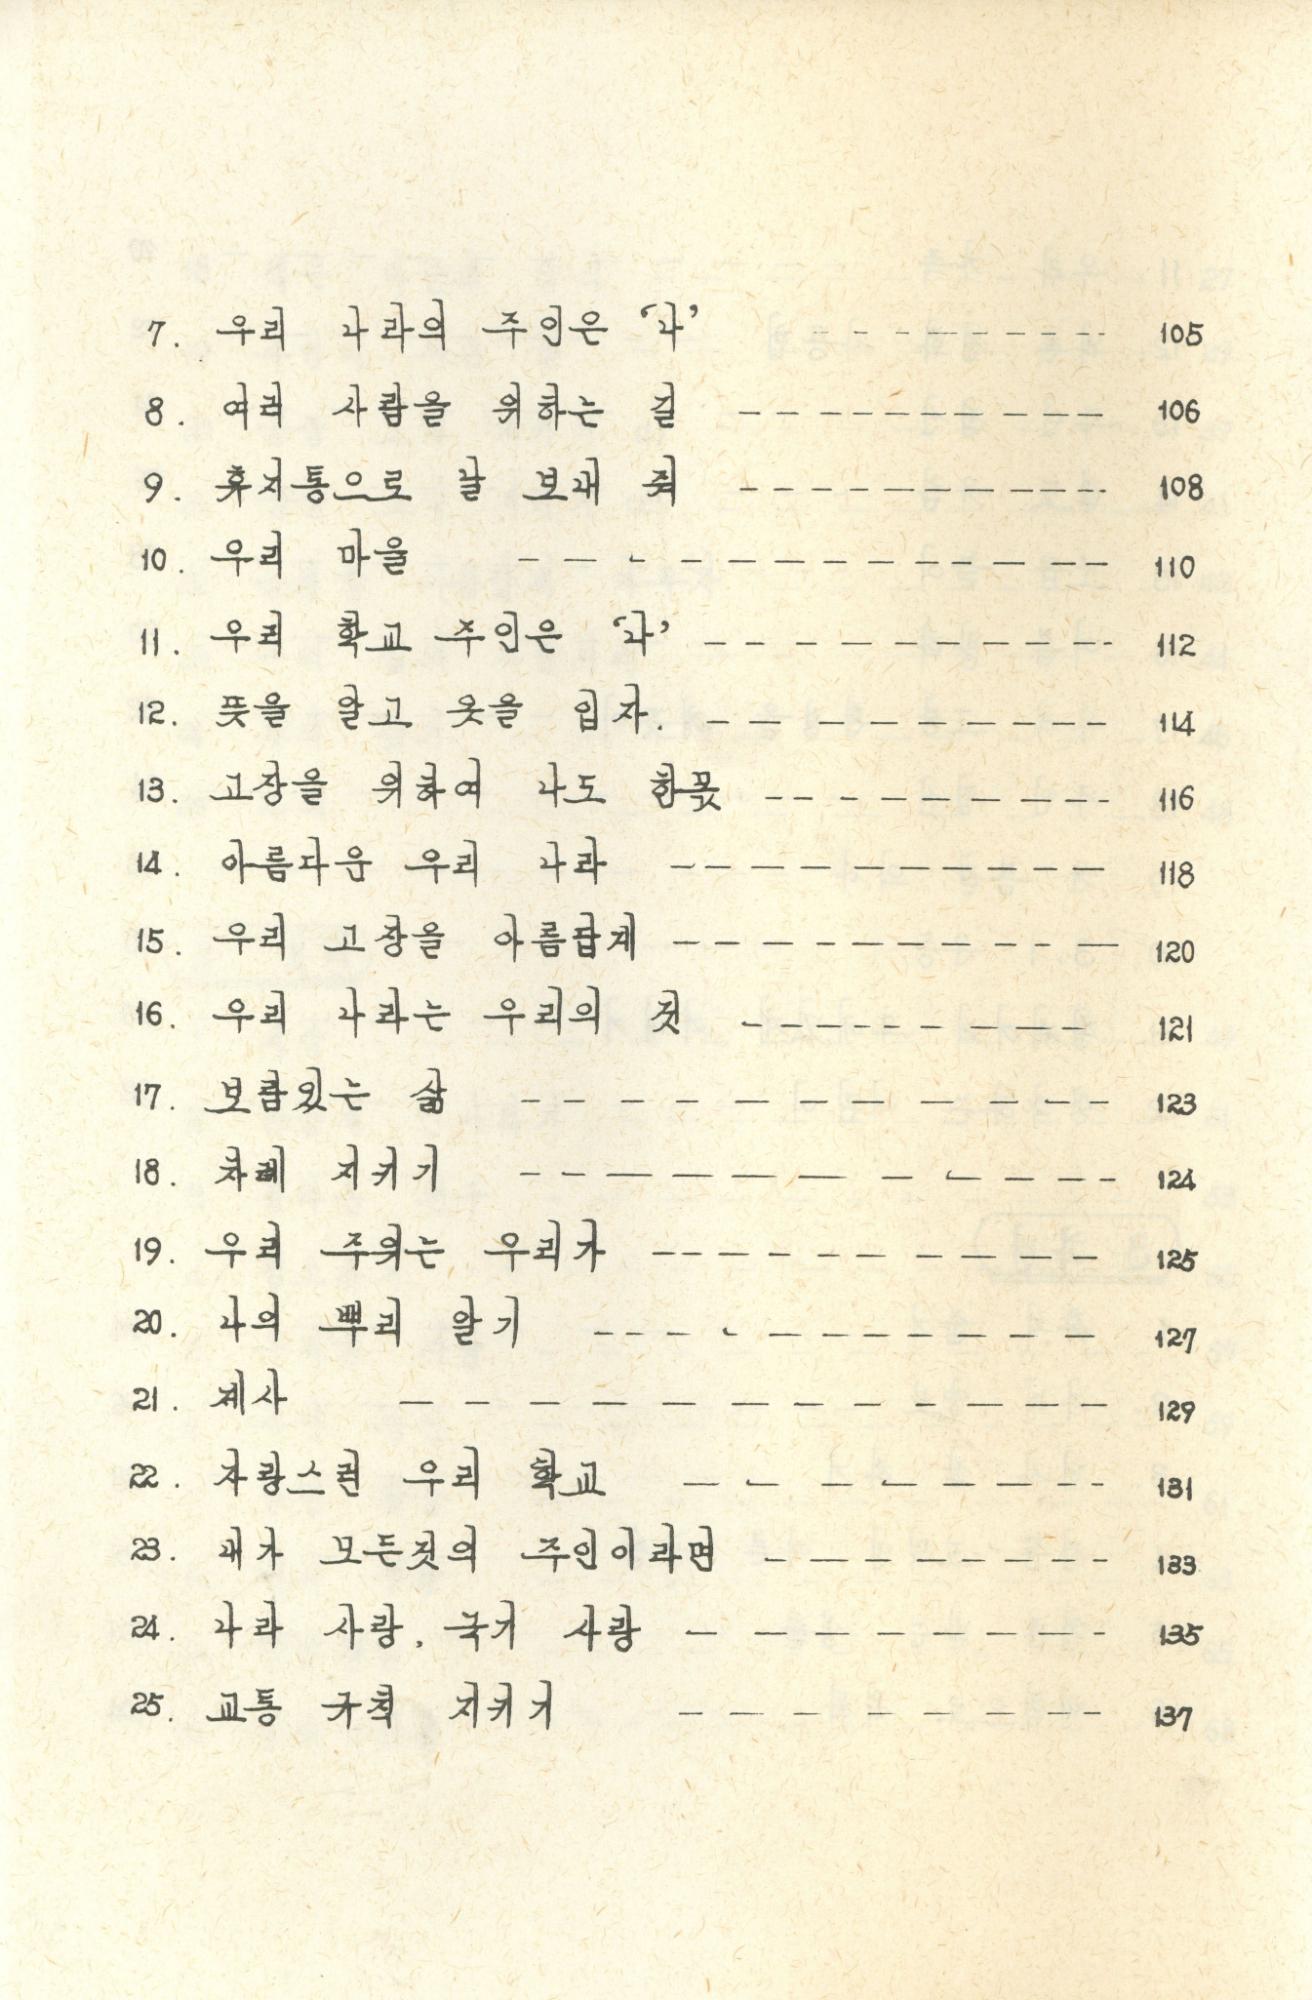 7. 우리 나라의 주인은 '나' --------- 105
8. 여러 사람을 위하는 길 --------- 106
9. 휴지통으로 날 보내 줘 --------- 108
10. 우리 마을 --------- 110
11. 우리 학교 주인은 '나' --------- 112
12. 뜻을 알고 옷을 입자. --------- 114
13. 고장을 위하여 나도 한몫 --------- 116
14. 아름다운 우리 나라 --------- 118
15. 우리 고장을 아름답게 --------- 120
16. 우리 나라는 우리의 것 --------- 121
17. 보람있는 삶 --------- 123
18. 차례 지키기 --------- 124
19. 우리 주위는 우리가 --------- 125
20. 나의 뿌리 알기 --------- 127
21. 제사 --------- 129
22. 자랑스런 우리 학교 --------- 131
23. 내가 모든것의 주인이라면 --------- 133
24. 나라 사랑, 국기 사랑 --------- 135
25. 교통 규칙 지키기 --------- 137